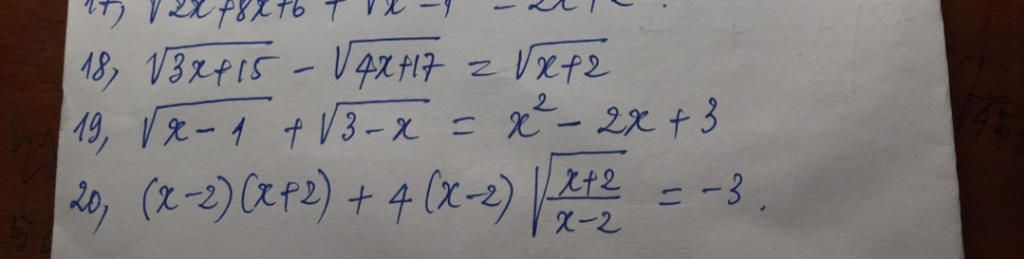 17, √2x+8x+6 + √x-1 = 2x+2.
18, √3x+15 - √4x+17 = √x+2
19, √x-1 + √3-x = x² - 2x + 3
20, (x-2)(x+2) + 4(x-2) √x+2/x-2 = -3.